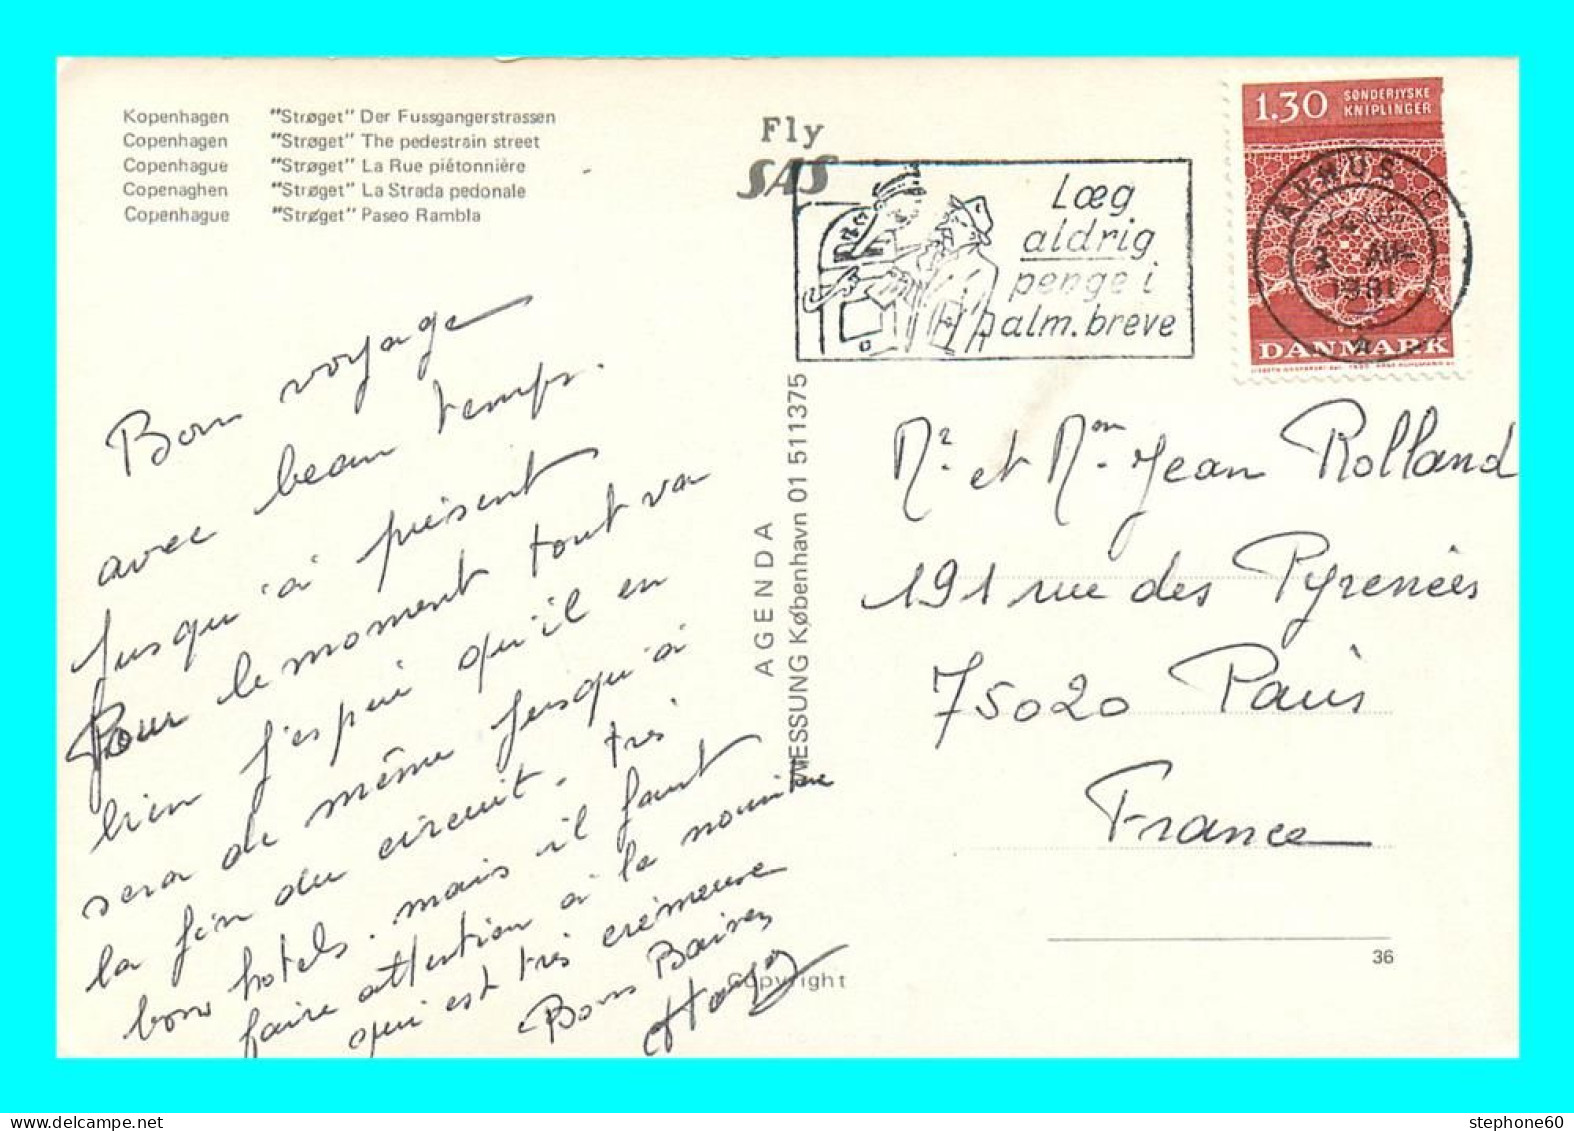 Kopenhagen "Strøget" Der Fussgangerstrassen
Copenhagen "Strøget" The pedestrain street
Copenhague "Strøget" La Rue piétonnière
Copenaghen "Strøget" La Strada pedonale
Copenhague "Strøget" Paseo Rambla
Fly
SAS
Læg
aldrig
penge i
alm. breve
1.30 SØNDERJYSKE
KNIPLINGER
DANMARK
ÅRHUS C
1981
Bon voyage
avec beau temps.
Jusqu'à présent
Pour le moment tout va
bien j'espère qu'il en
sera de même jusqu'à
la fin du circuit. très
bons hotels. mais il faut
faire attention à la nourriture
qui est très crémeuse
Bons Baisers
AGENDA
MESSUNG København 01 511375
Copyright
Mr. et Mme. Jean Rolland
191 rue des Pyrenées
75020 Paris
France
36
stephone60